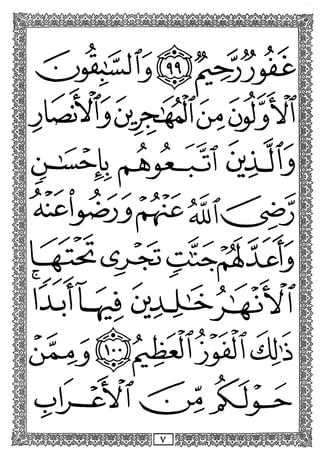 غَفُورٌ رَّحِيمٌ ﴿٩٩﴾ وَالسَّٰبِقُونَ
الْأَوَّلُونَ مِنَ الْمُهَٰجِرِينَ وَالْأَنصَارِ
وَالَّذِينَ اتَّبَعُوهُم بِإِحْسَٰنٍ
رَّضِىَ اللَّهُ عَنْهُمْ وَرَضُوا۟ عَنْهُ
وَأَعَدَّ لَهُمْ جَنَّٰتٍ تَجْرِى تَحْتَهَا
الْأَنْهَٰرُ خَٰلِدِينَ فِيهَآ أَبَدًا ۚ
ذَٰلِكَ الْفَوْزُ الْعَظِيمُ ﴿١٠٠﴾ وَمِمَّنْ
حَوْلَكُم مِّنَ الْأَعْرَابِ
٧